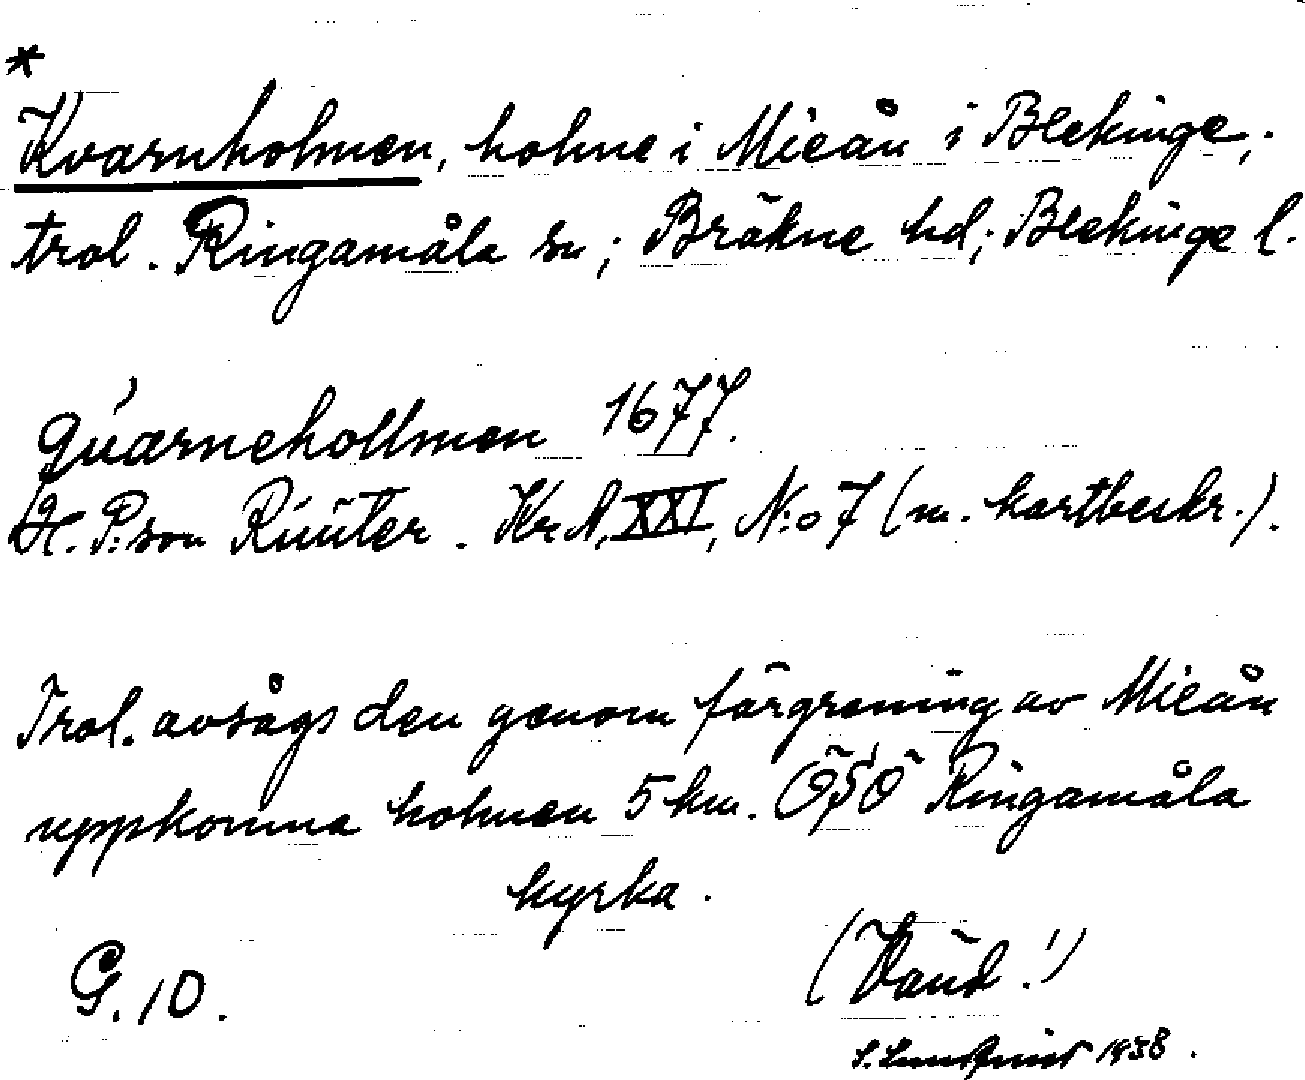 *
Kvarnholmen, holme i Mieån i Blekinge,
trol. Ringamåla sn; Bräkne hd; Blekinge l.
Qvarnehollmen 1677.
H. P:son Ruuter. Kr A, XXI, N:o 7 (m. kartbeskr.).
Trol. avsågs den genom förgrening av Mieån
uppkomna holmen 5 km. ÖSÖ Ringamåla
kyrka.
G. 10.
(Vänd!)
1938.